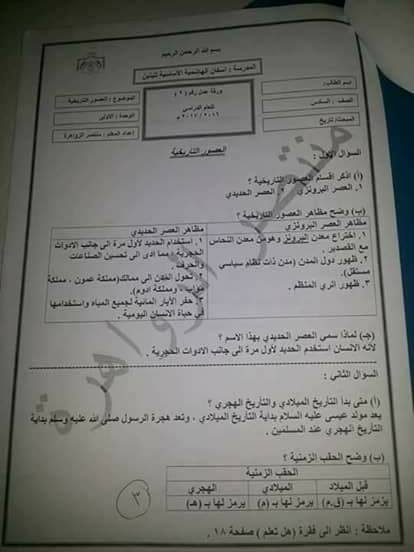 بسم الله الرحمن الرحيم
المدرسة : اسكان الهاشمية الأساسية للبنين
اسم الطالب:
الصف : السادس
المبحث/ تاريخ
ورقة عمل رقم ( ٢ )
للعام الدراسي
٢٠١٦ / ٢٠١٧ م
الموضوع : العصور التاريخية
الوحدة : الأولى
إعداد المعلم : منتصر الزواهرة
العصور التاريخية
السؤال الأول :
(أ) اذكر اقسام العصور التاريخية ؟
١. العصر البرونزي ٢. العصر الحديدي
(ب) وضح مظاهر العصور التاريخية ؟
مظاهر العصر البرونزي
١. اختراع معدن البرونز وهومن معدن النحاس
مع القصدير .
٢. ظهور دول المدن (مدن ذات نظام سياسي
مستقل).
٣. ظهور الري المنظم .
مظاهر العصر الحديدي
١. استخدام الحديد لأول مرة الى جانب الادوات
الحجرية ، مما ادى الى تحسين الصناعات
والحرف .
٢. تحول المدن الى ممالك(مملكة عمون ، مملكة
مؤاب ، ومملكة ادوم).
٣. حفر الآبار المائية لجميع المياه واستخدامها
في حياة الانسان اليومية .
(جـ) لماذا سمي العصر الحديدي بهذا الاسم ؟
لانه الانسان استخدم الحديد لأول مرة الى جانب الادوات الحجرية .
السؤال الثاني :
(أ) متى بدأ التاريخ الميلادي والتأريخ الهجري ؟
يعد مولد عيسى عليه السلام بداية التأريخ الميلادي ، وتعد هجرة الرسول صلى الله عليه وسلم بداية
التأريخ الهجري عند المسلمين .
(ب) وضح الحقب الزمنية ؟
الحقب الزمنية
قبل الميلاد الميلادي الهجري
يرمز لها بـ (ق.م) يرمز لها بـ (م) يرمز لها بـ (هـ)
ملاحظة : انظر الى فقرة (هل تعلم ) صفحة ١٨ .
٣
منتصر الزواهرة